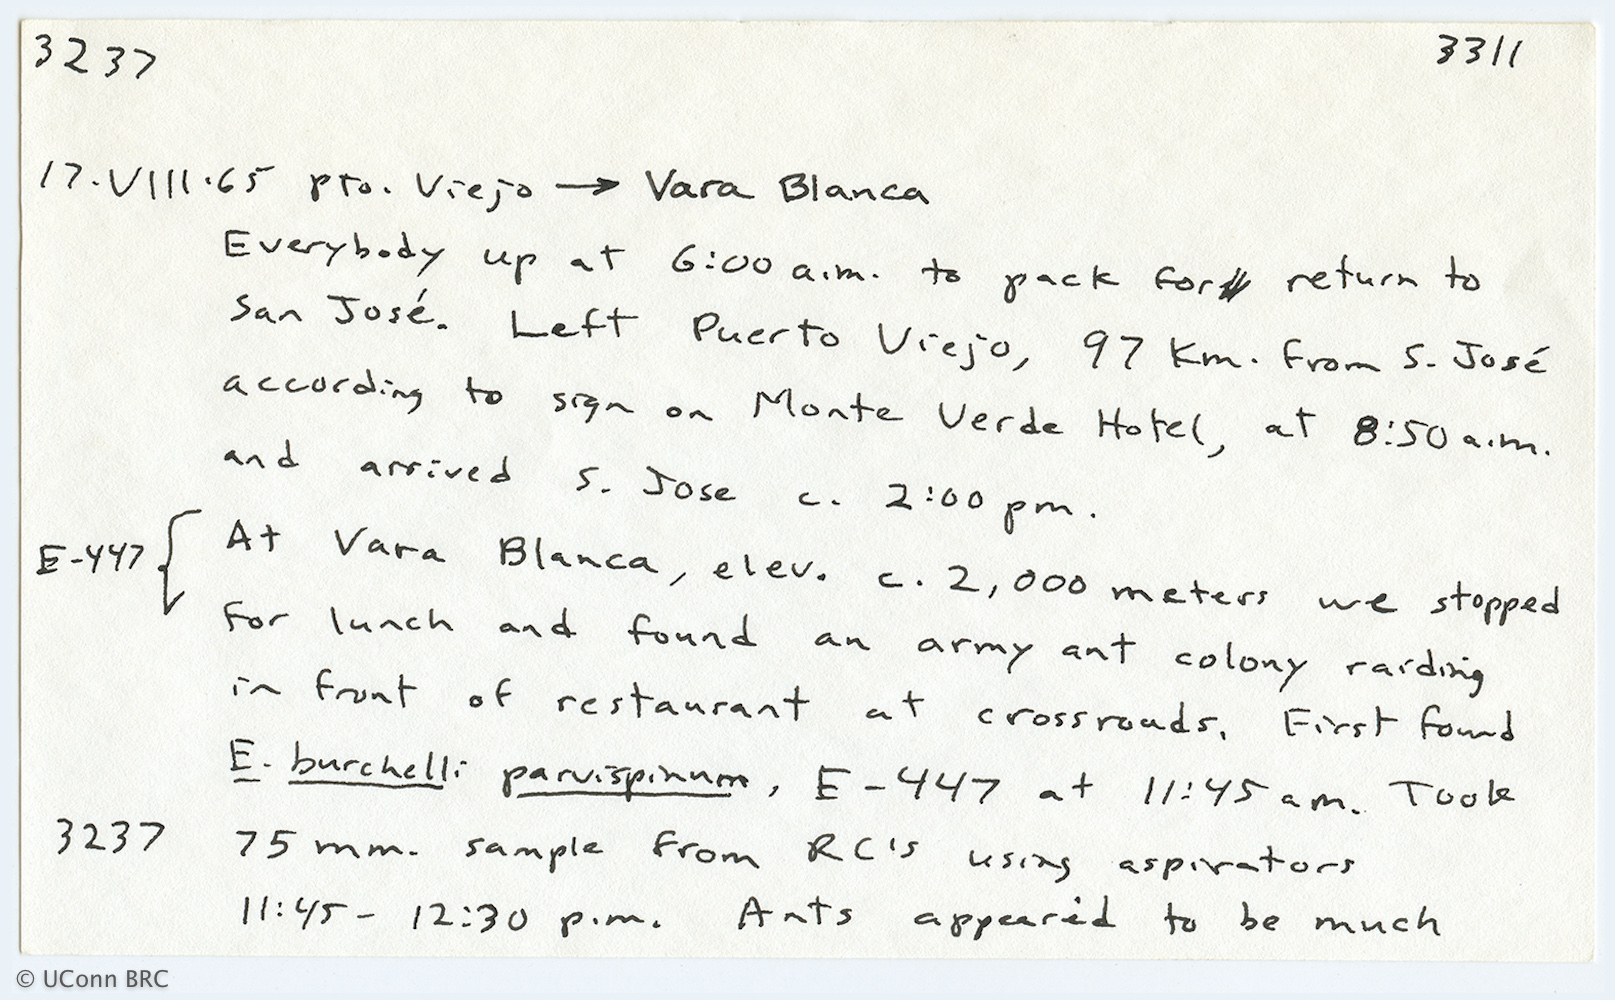 3237 3311
17.VIII.65 pto. Viejo → Vara Blanca
Everybody up at 6:00 a.m. to pack for return to
San José. Left Puerto Viejo, 97 Km. from S. José
according to sign on Monte Verde Hotel, at 8:50 a.m.
and arrived S. Jose c. 2:00 pm.
E-447 { At Vara Blanca, elev. c. 2,000 meters we stopped
for lunch and found an army ant colony raiding
in front of restaurant at crossroads. First found
E. burchelli parvispinum, E-447 at 11:45 am. Took
3237 75 mm. sample from RC's using aspirators
11:45 - 12:30 p.m. Ants appeared to be much
© UConn BRC